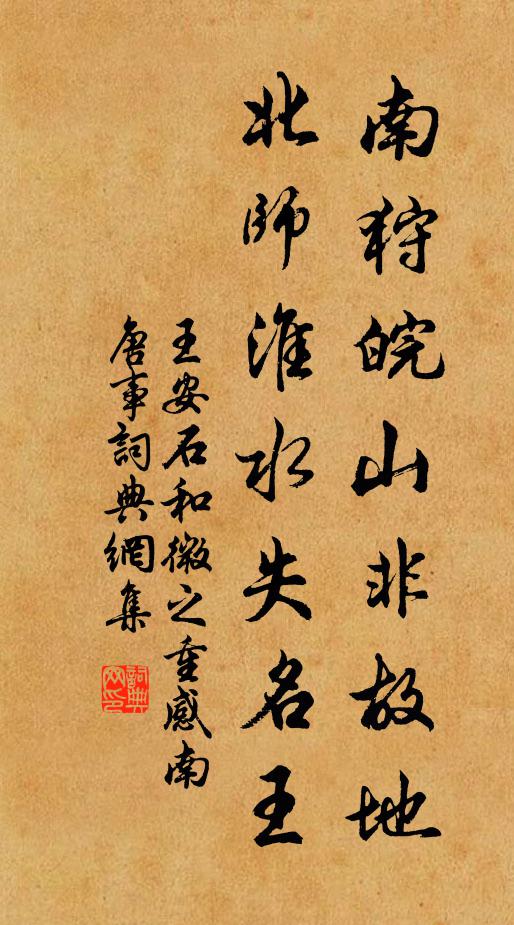 南狩皖山非故地
北師淮水失名王
王安石和微之重感南
唐事詞典網集
詞典
网印